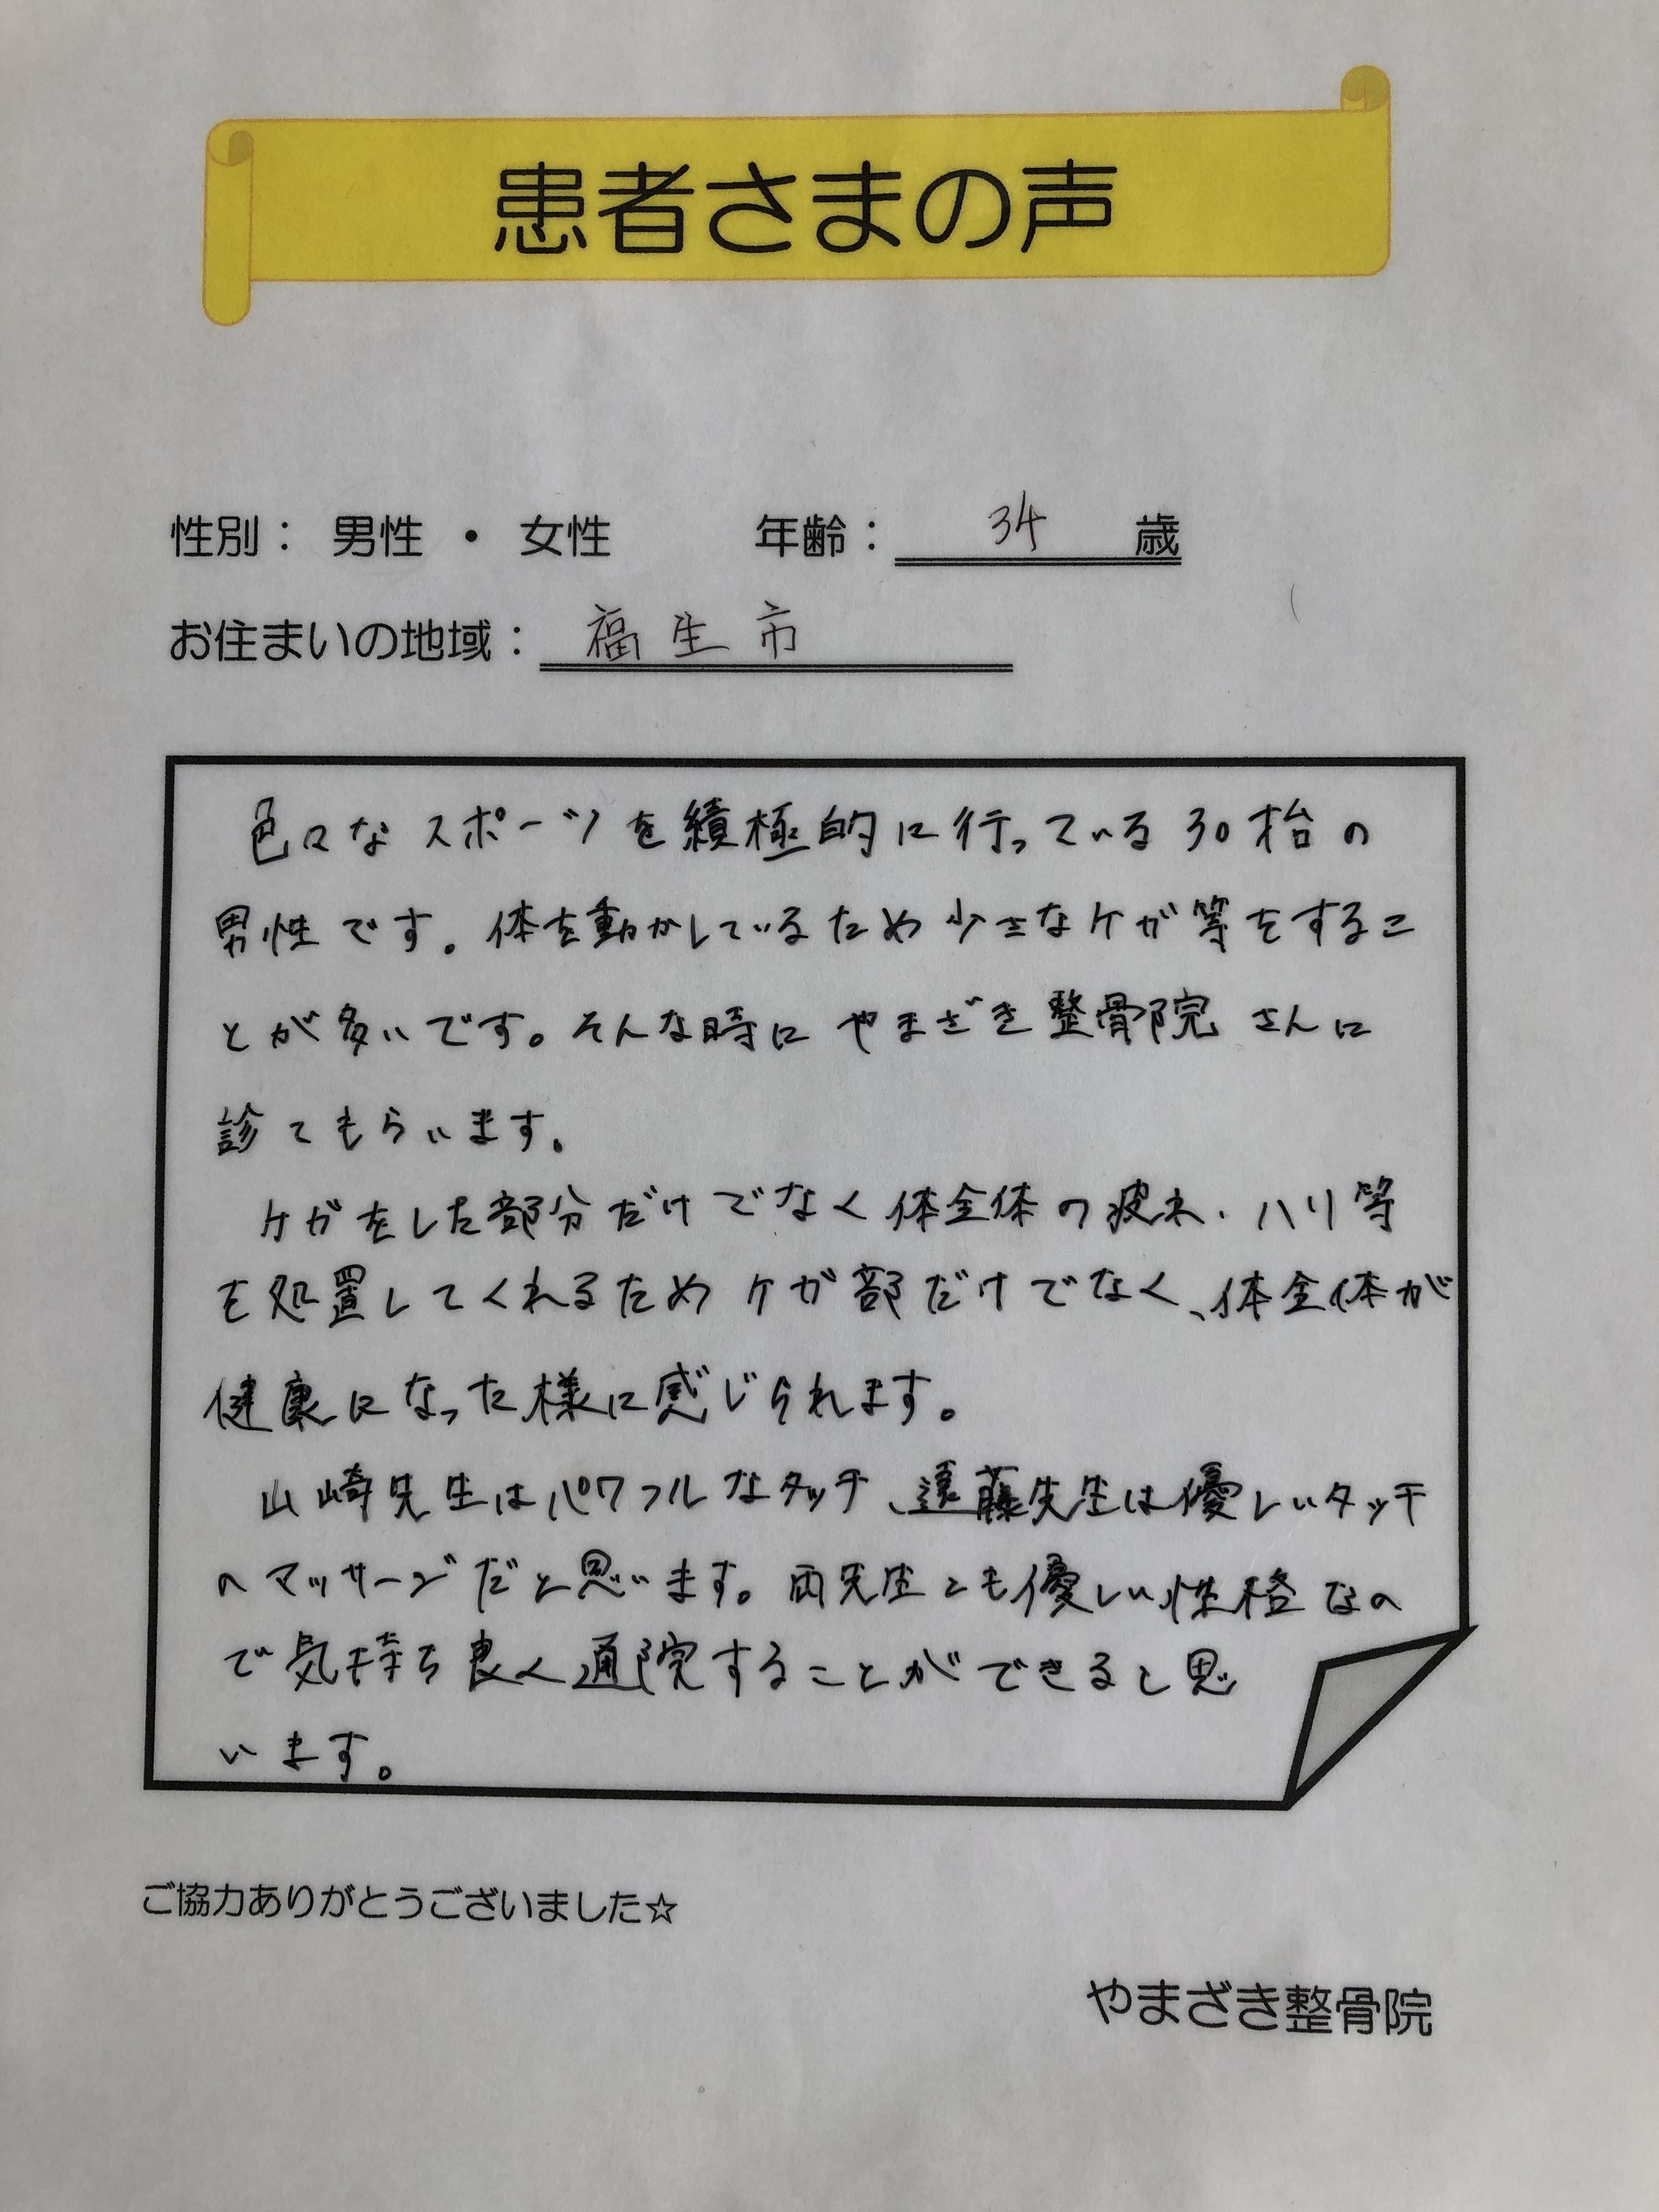 患者さまの声
性別： 男性 ・ 女性 年齢： 34 歳
お住まいの地域： 福生市
色々なスポーツを積極的に行っている30枱の
男性です。体を動かしているため少さなケガ等をするこ
とが多いです。そんな時にやまざき整骨院さんに
診てもらいます。
ケガをした部分だけでなく体全体の疲れ・ハリ等
を処置してくれるためケガ部だけでなく、体全体が
健康になった様に感じられます。
山崎先生はパワフルなタッチ、遠藤先生は優しいタッチ
のマッサージだと思います。両先生とも優しい性格なの
で気持ち良く通院することができると思
います。
ご協力ありがとうございました☆
やまざき整骨院